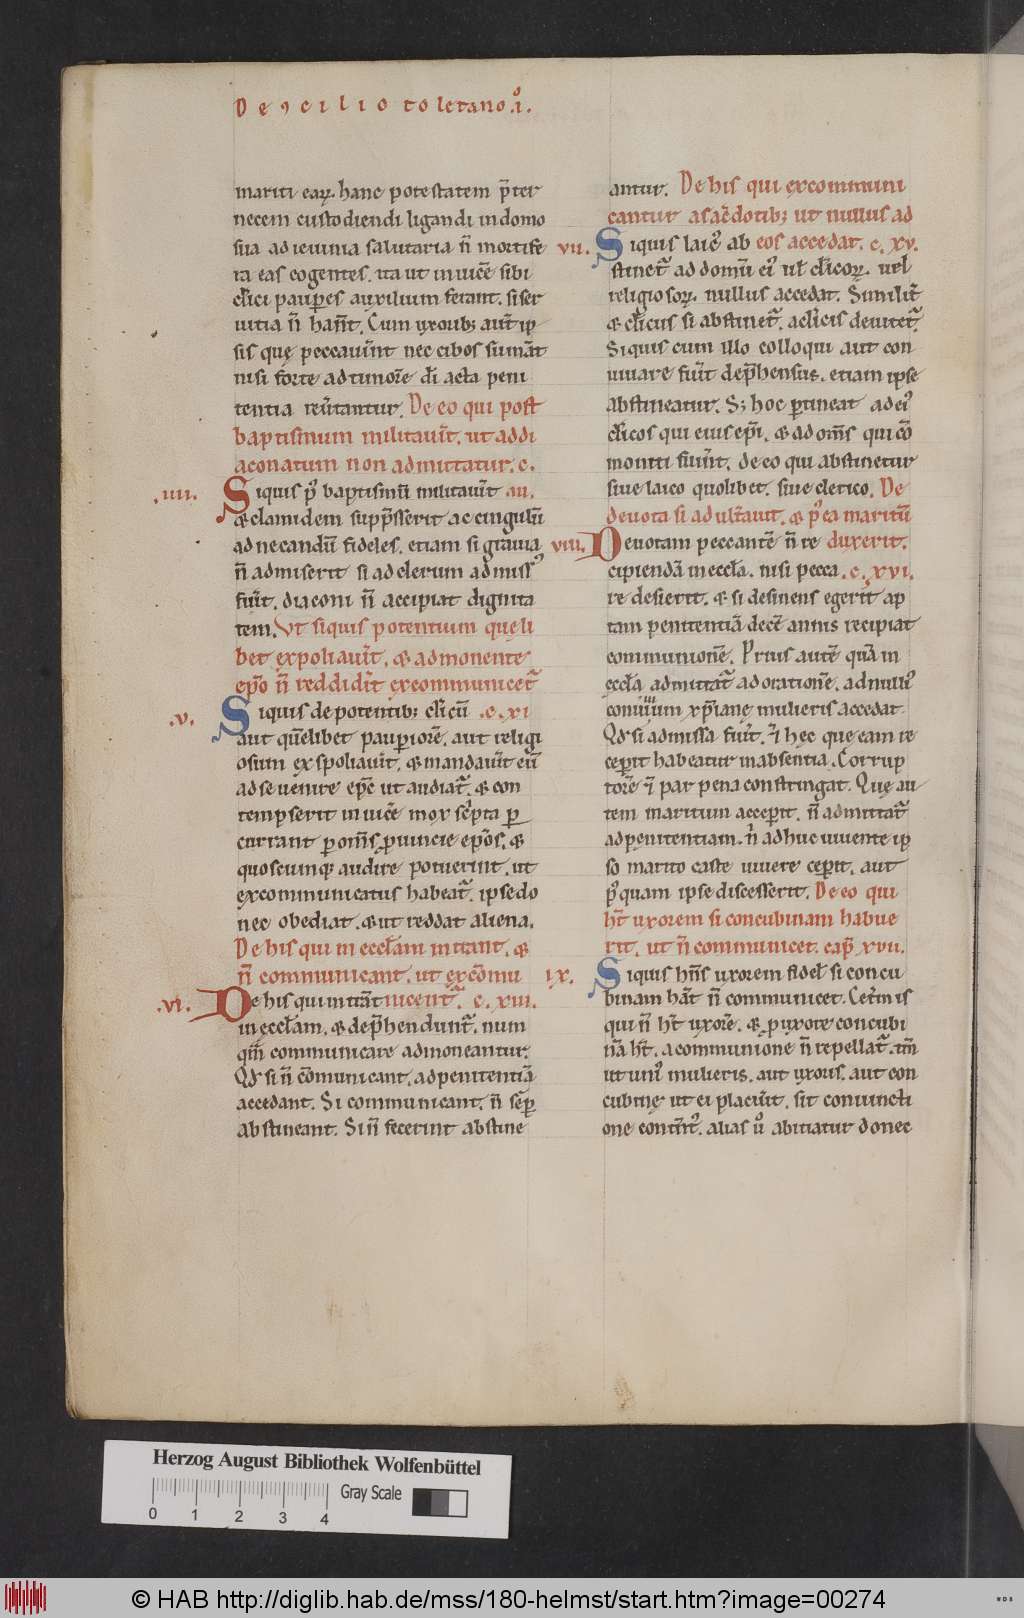 De ꝯcilio toletano .i͛.
mariti eaꝝ. hanc potestatem p̃ter
necem custodiendi ligandi in domo
sua ad ieiunia salutaria ñ mortife
ra eas cogentes. ita ut inuicẽ sibi
cl̃ici paup̃es auxilium ferant. si ser
uitia ñ hañt. Cum uxorib; aut̃ ip
sis que peccauer̃t nec cibos sumãt
nisi forte ad timorẽ di acta peni
tentia reũtantur. De eo qui post
baptismum militauit̃. ut ad di
aconatum non admittatur. c.
.iiii. Siquis p̾ baptismũ militauit̃ aū.
& clamidem sump̃sserit ac cingulũ
ad necandũ fideles. etiam si grauia
ñ admiserit si ad clerum admiss᾿
fuit̃. diaconi ñ accipiat dignita
tem. Vt siquis potentium queli
bet expoliauit̃. & admonente
ep̃o ñ reddidit̃ excommunicet̃
.v. Siquis de potentib; cl̃icũ .c. xi
aut quẽlibet paup̃iorẽ. aut religi
osum exspoliauit̃. & mandauit̃ eũ
ad se uenire ep̃c ut audiat̃. & con
tempserit inuicẽ mox sc̃pta p̱
currant p̱ om̃s ꝓuincie ep̃os. &
quoscunq; audire potuerint. ut
excommunicatus habeat̃. ipse do
nec obediat. & ut reddat aliena.
De his qui in eccl̃am intrant. &
ñ communicant. ut excõmu
.vi. De his qui intrãt nicent̃. c. xiii.
in eccl̃am. & dep̃hendunt̃. num
qm̃ communicare admoneantur.
Qd̃ si ñ cõmunicant. ad penitentiã
accedant. Si communicant. ñ semp̱
abstineant. Si ñ fecerint abstine
antur. De his qui excommuni
cantur a sac̃dotib; ut nullus ad
vii. Siquis laic᾿ ab eos accedat. c. xv.
stinet̃ ad domũ ei᾿ ul̃ cl̃icoꝝ. uel
religiosoꝝ. nullus accedat. Similit̃
& cl̃icus si abstinet̃. a cl̃icis deuitet̃.
Siquis cum illo colloqui aut con
uiuare fuit̃ dep̃hensus. etiam ipse
abstineatur. S; hoc p̱tineat ad ei᾿
cl̃icos qui eius ep̃i. & ad om̃s qui cõ
moniti fuer̃t. de eo qui abstinetur
siue laico quolibet. siue clerico. De
deuota si adult̃auit. & p̾ea maritũ
viii. Deuotam peccantẽ ñ re duxerit.
cipiendã in eccl̃a. nisi pecca .c. xvi.
re desierit. & si desinens egerit ap
tam penitentiã decẽ annis recipiat
communionẽ. Prius autẽ quã in
eccl̃a admittat̃ ad orationẽ. ad nulli᾿
conuiuium xp̃iane mulieris accedat.
Qd̃ si admissa fuit̃. & hec que eam re
cep̱it habeatur in absentia. Corrup
torẽ & par pena constringat. Que au
tem maritum accep̱it. ñ admittat̃
ad penitentiam. ñ adhuc uiuente ip
so marito caste uiuere cep̱it. aut
p̾quam ipse discesserit. De eo qui
ht̃ uxorem si concubinam habue
rit. ut ñ communicet. cap̃ xvii.
ix. Siquis hñs uxorem fidel̃ si concu
binam hãt ñ communicet. Cet̃m is
qui ñ ht̃ uxorẽ. & ꝓ uxore concubi
nã ht̃. a communione ñ repellat̃. tm̃
ut uni᾿ mulieris. aut uxoris. aut con
cubine ut ei placuit̃. sit coniuncti
one content᾿. alias ů abiciatur donec
Herzog August Bibliothek Wolfenbüttel
Gray Scale
0 1 2 3 4
© HAB http://diglib.hab.de/mss/180-helmst/start.htm?image=00274